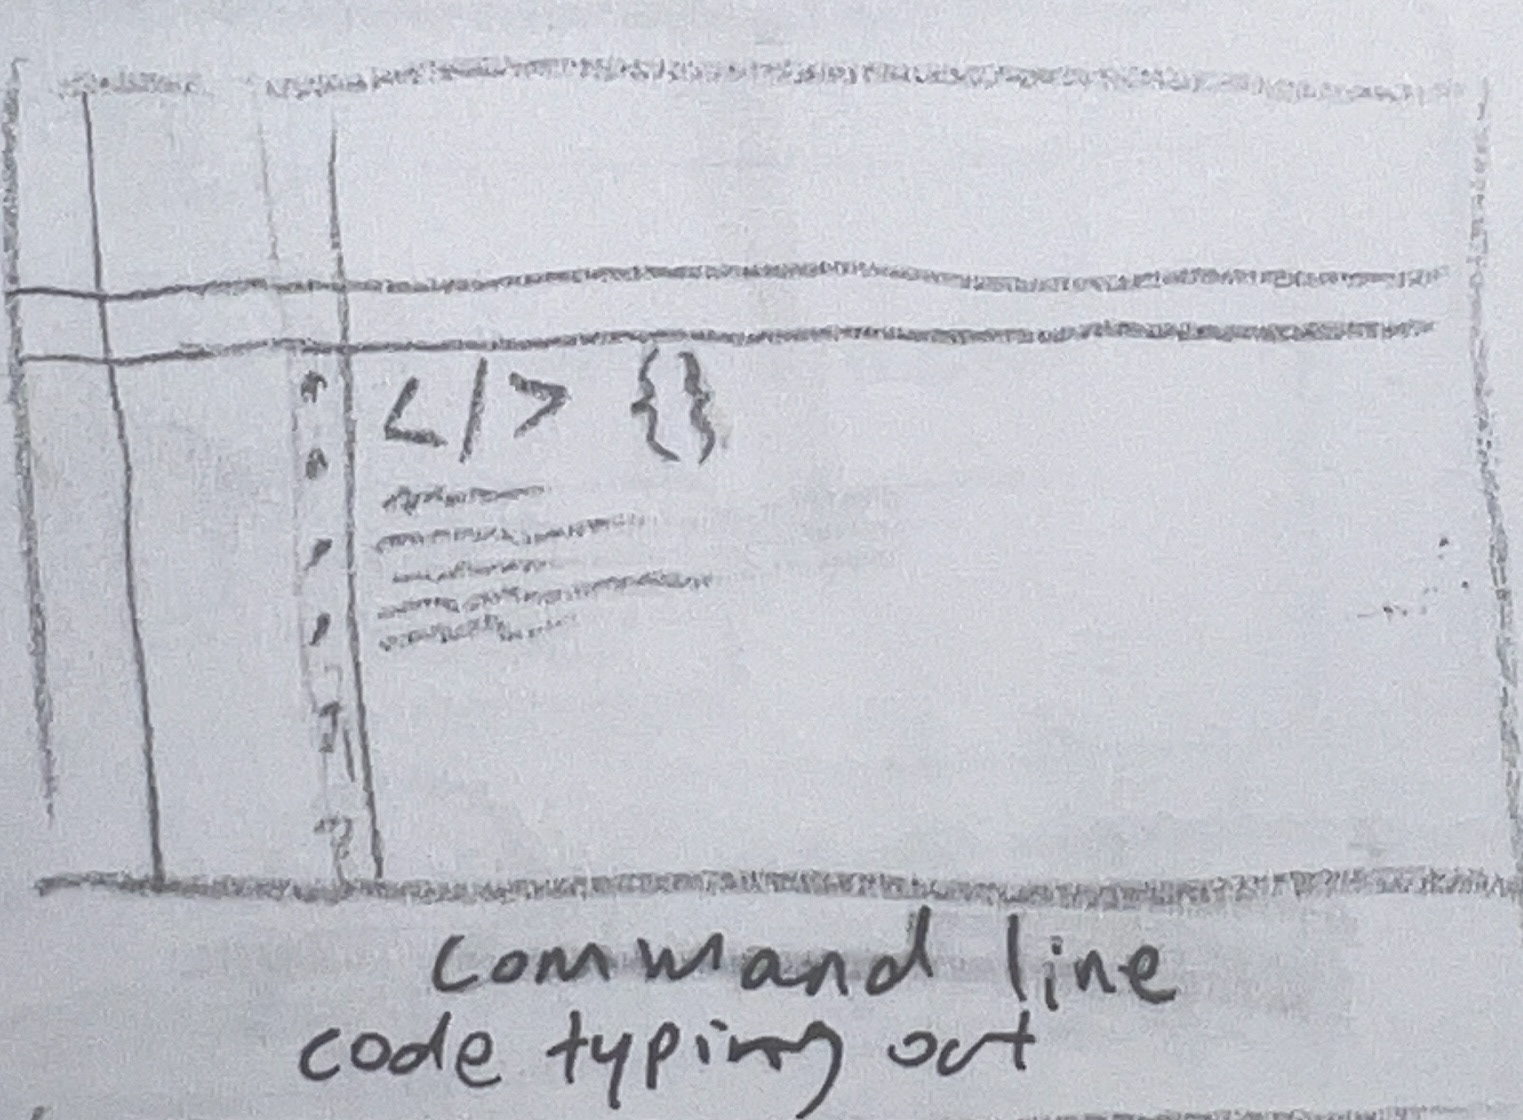 </> {}
command line
code typing out